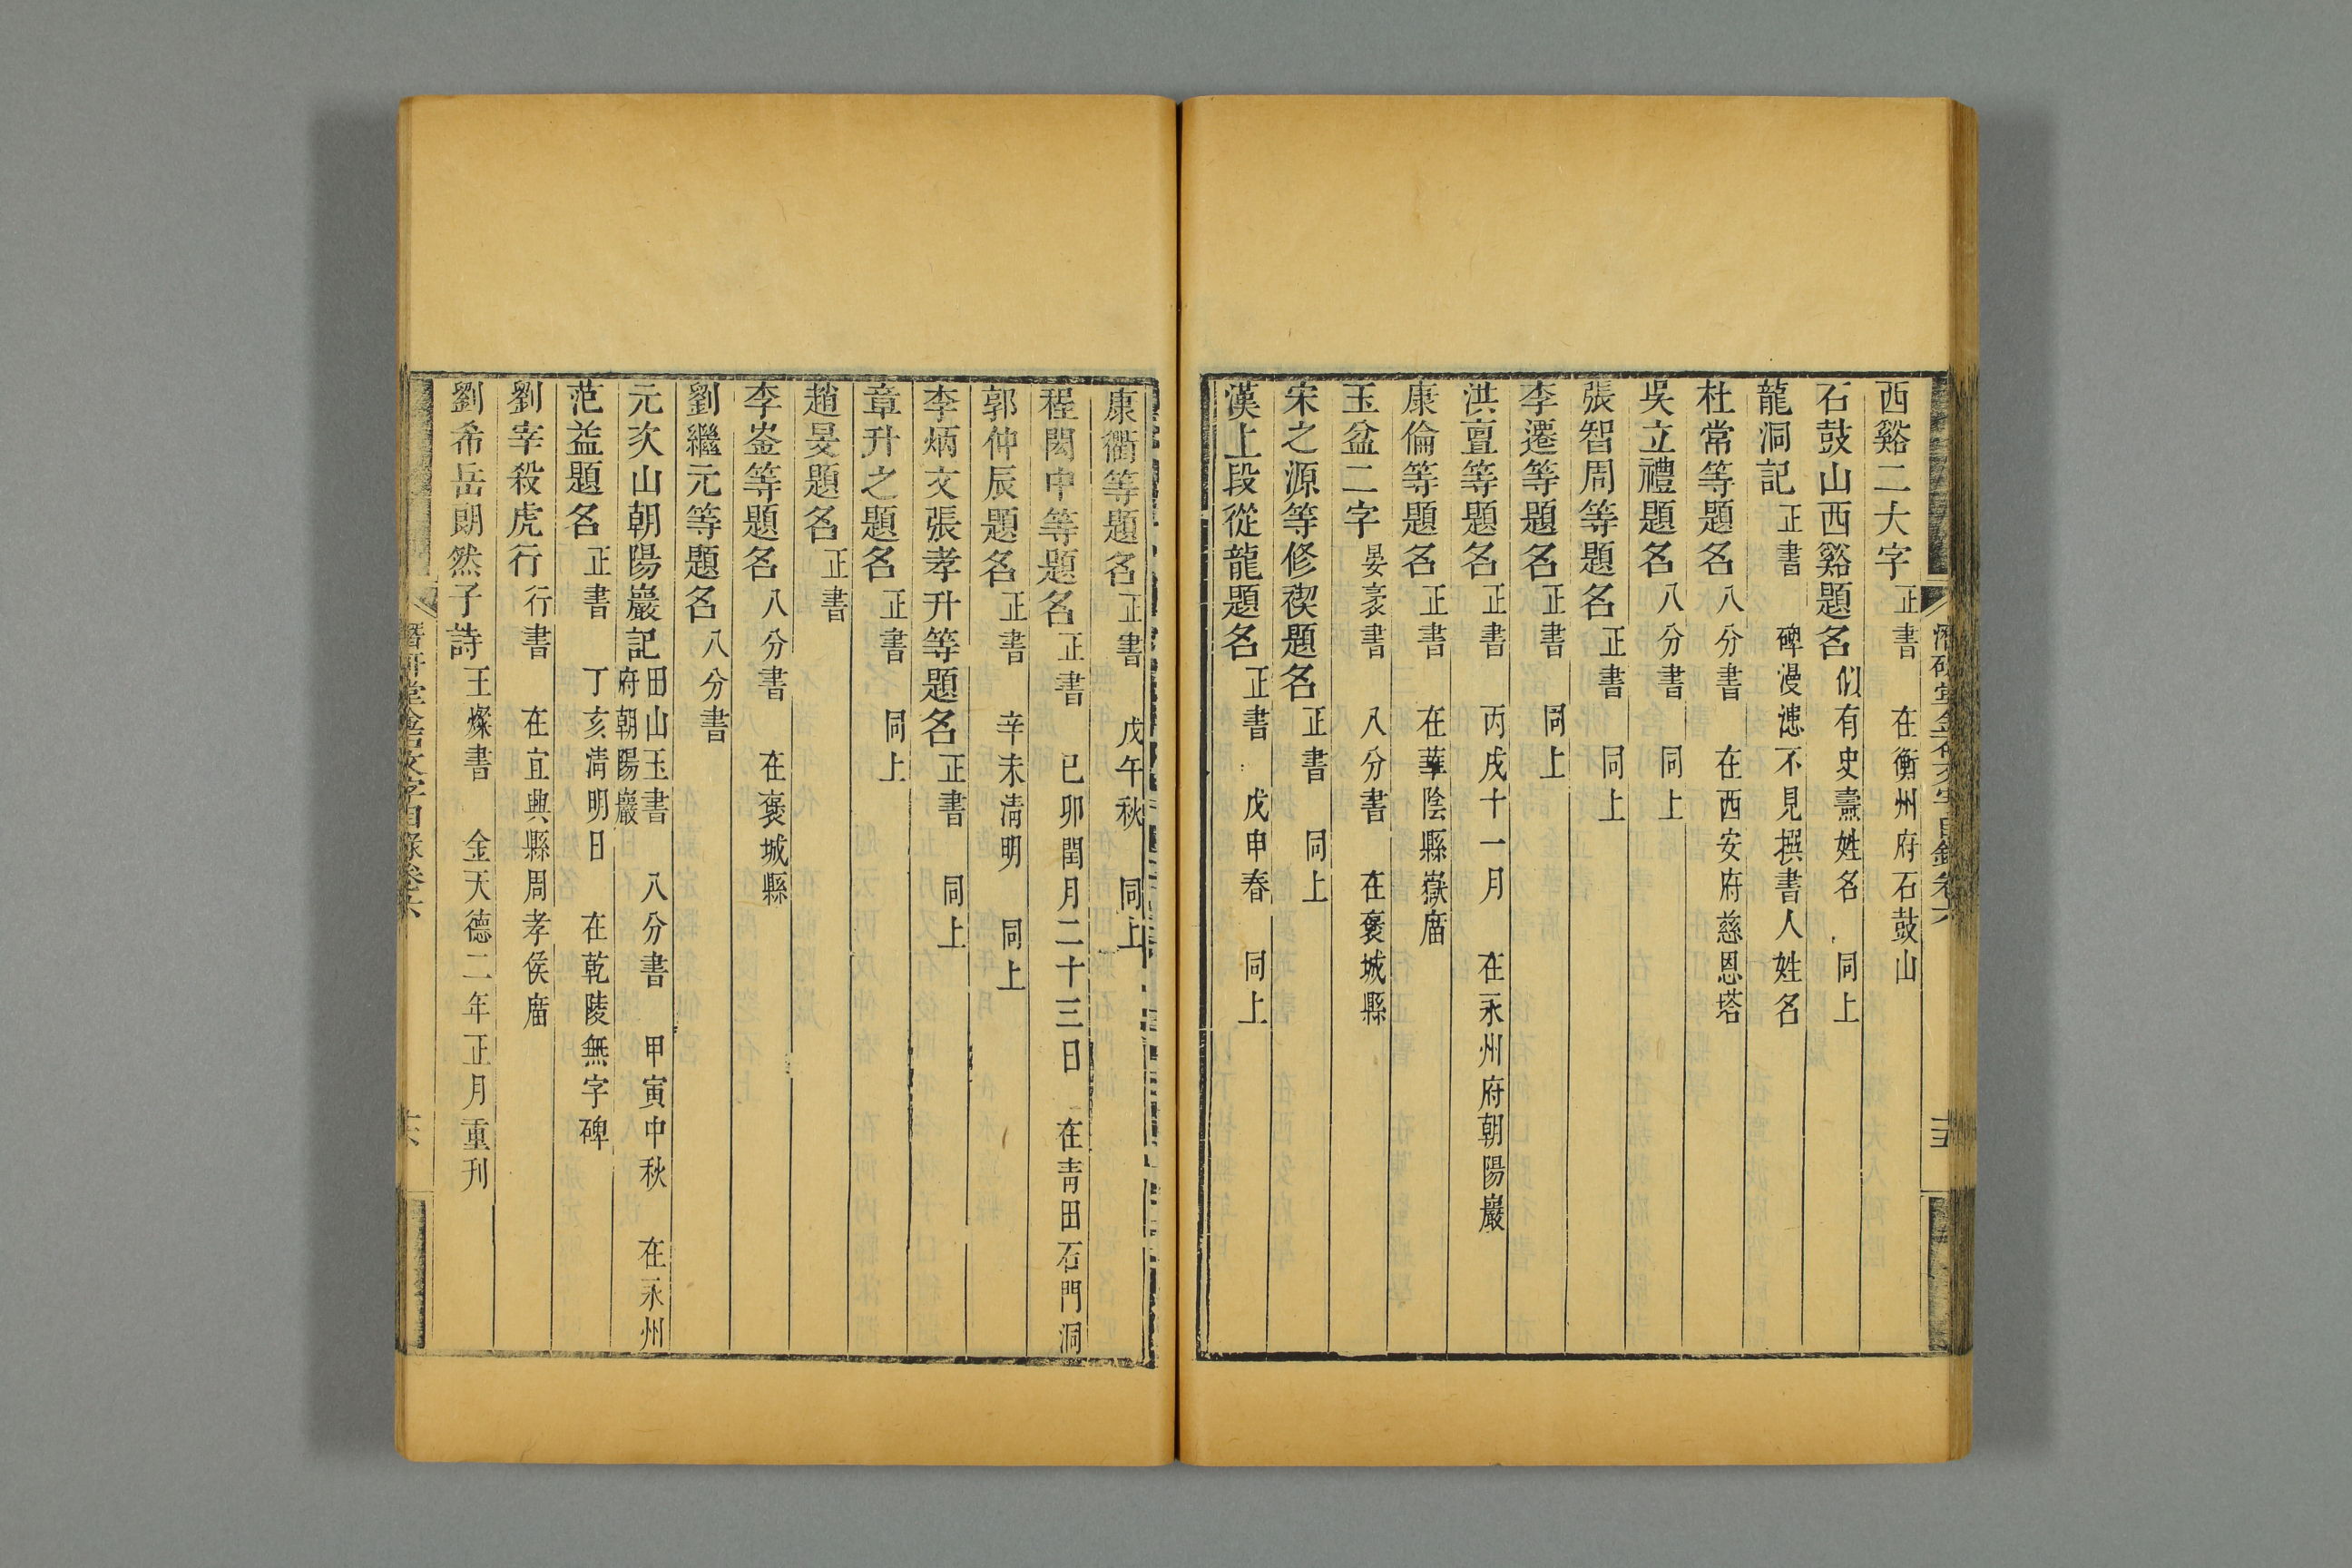 西谿二大字 正書 在衡州府石鼓山
石鼓山西谿題名 似有史燾姓名 同上
龍洞記 正書 碑漫漶不見撰書人姓名
杜常等題名 八分書 在西安府慈恩塔
吳立禮題名 八分書 同上
張智周等題名 正書 同上
李遷等題名 正書 同上
洪亶等題名 正書 丙戌十一月 在永州府朝陽巖
康倫等題名 正書 在華陰縣嶽廟
玉盆二字 晏袤書 八分書 在褒城縣
宋之源等修禊題名 正書 同上
漢上段從龍題名 正書 戊申春 同上
康衢等題名 正書 戊午秋 同上
程閎中等題名 正書 已卯閏月二十三日 在青田石門洞
郭仲辰題名 正書 辛未清明 同上
李炳文張孝升等題名 正書 同上
章升之題名 正書 同上
趙旻題名 正書
李崟等題名 八分書 在褒城縣
劉繼元等題名 八分書
元次山朝陽巖記 田山玉書 八分書 甲寅中秋 在永州
府朝陽巖
范益題名 正書 丁亥清明日 在乾陵無字碑
劉宰殺虎行 行書 在宜興縣周孝侯廟
劉希岳朗然子詩 王燦書 金天德二年正月重刊
潛研堂金石文字目錄卷六